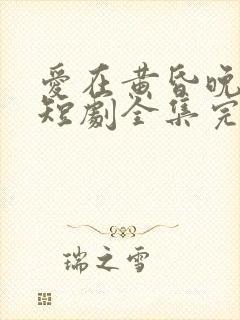 愛在黄昏晚
短劇全集完
瑞之雪